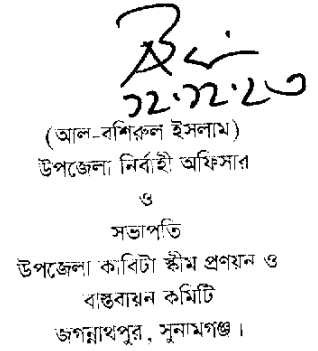 ১২.১২.২৩
(আল-বশিরুল ইসলাম)
উপজেলা নির্বাহী অফিসার
ও
সভাপতি
উপজেলা কাবিটা স্কীম প্রণয়ন ও
বাস্তবায়ন কমিটি
জগন্নাথপুর, সুনামগঞ্জ।